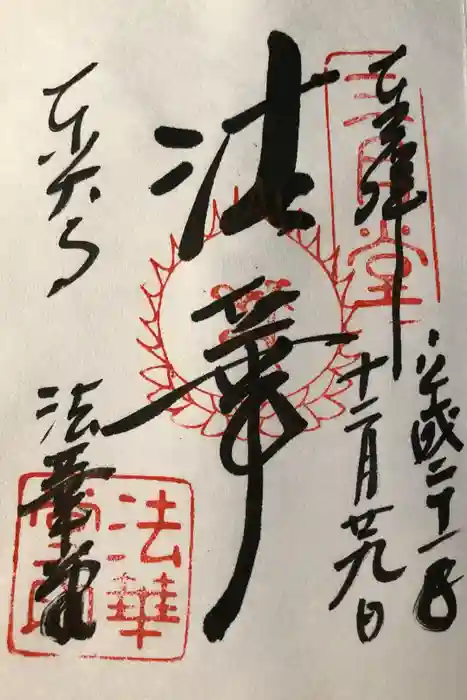 奉拝
三月堂
平成二十一年
十二月廿九日
法華
東大寺
法華堂
法華堂印